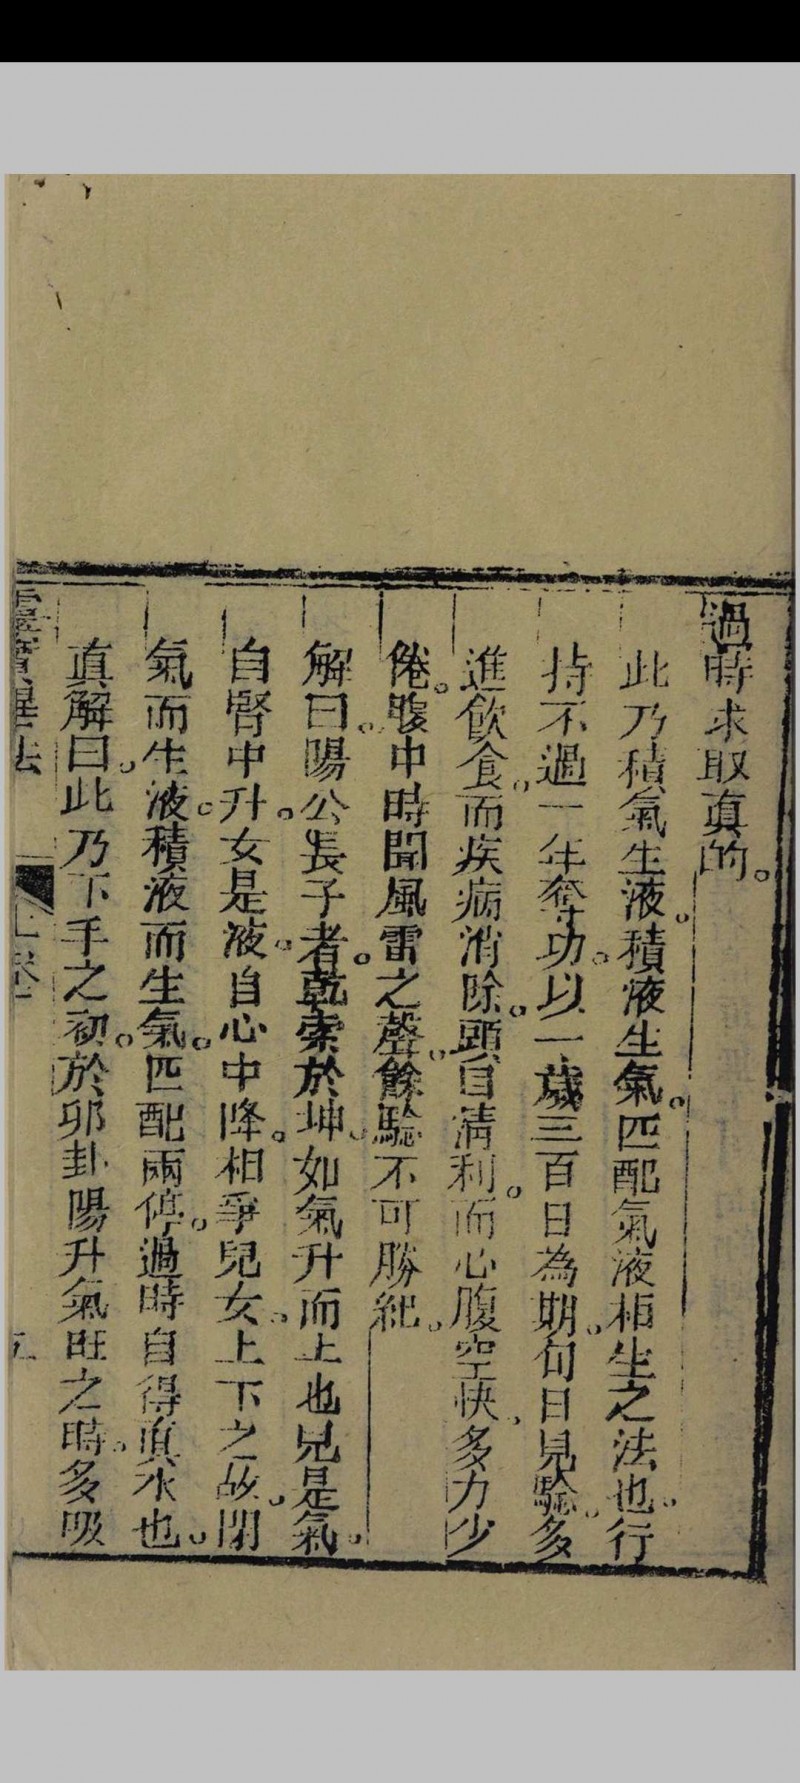 過時求取真的。
此乃積氣生液。積液生氣。匹配氣液相生之法也。行
持不過一年奪功。以一歲三百日為期。旬日見驗。多
進飲食。而疾病消除。頭目清利。而心腹空快。多力少
倦。腹中時聞風雷之聲。餘驗不可勝紀。
解曰。陽公長子者。乾索於坤。如氣升而上也兒是氣。
自腎中升。女是液。自心中降。相爭兒女。上下之故。閉
氣而生液。積液而生氣。匹配兩停。過時自得真水也。
真解曰。此乃下手之初。於卯卦陽升氣旺之時。多吸
靈寶畢法
上卷
五